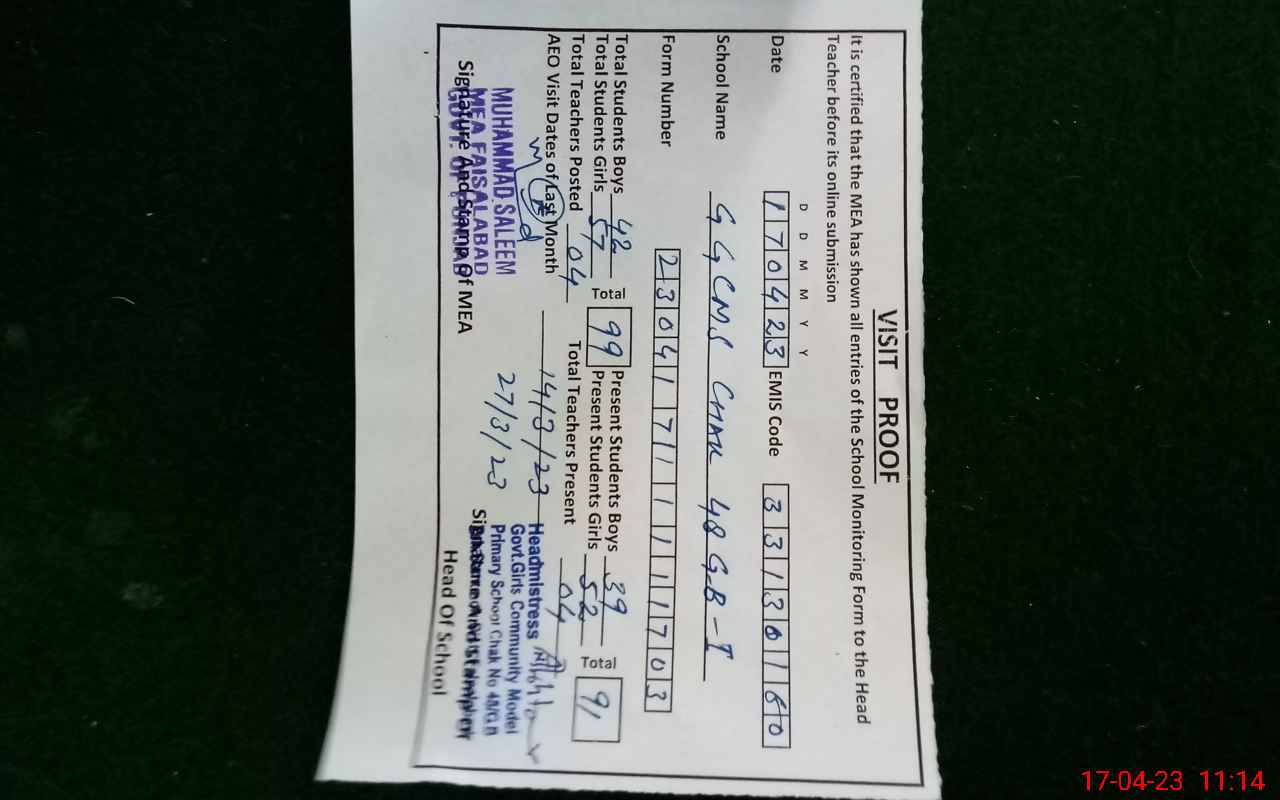 VISIT PROOF
It is certified that the MEA has shown all entries of the School Monitoring Form to the Head
Teacher before its online submission
D D M M Y Y
Date 170423 EMIS Code 33130160
School Name GGCMS CHAK 48 GB-I
Form Number 2304171111703
Total Students Boys 42 Total 99 Present Students Boys 39 Total 91
Total Students Girls 57 Present Students Girls 52
Total Teachers Posted 04 Total Teachers Present 04
AEO Visit Dates of Last Month 14/3/23
27/3/23
MUHAMMAD SALEEM
MEA FAISALABAD
GOVT. OF PUNJAB
Signature And Stamp Of MEA
Headmistress
Govt.Girls Community Model
Primary School Chak No 48/G.B
Signature And Stamp Of
Head Of School
17-04-23 11:14